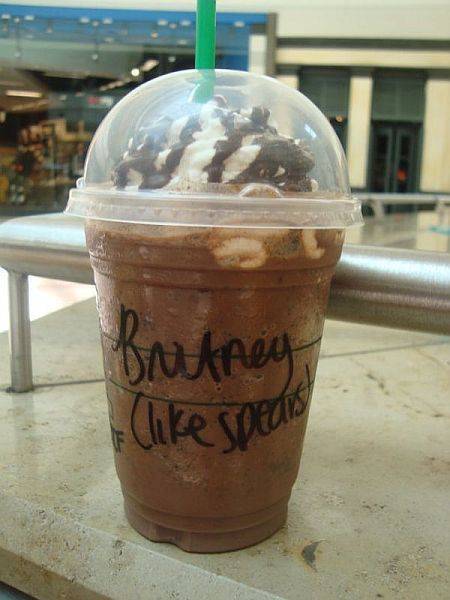 Britney
(like spears)